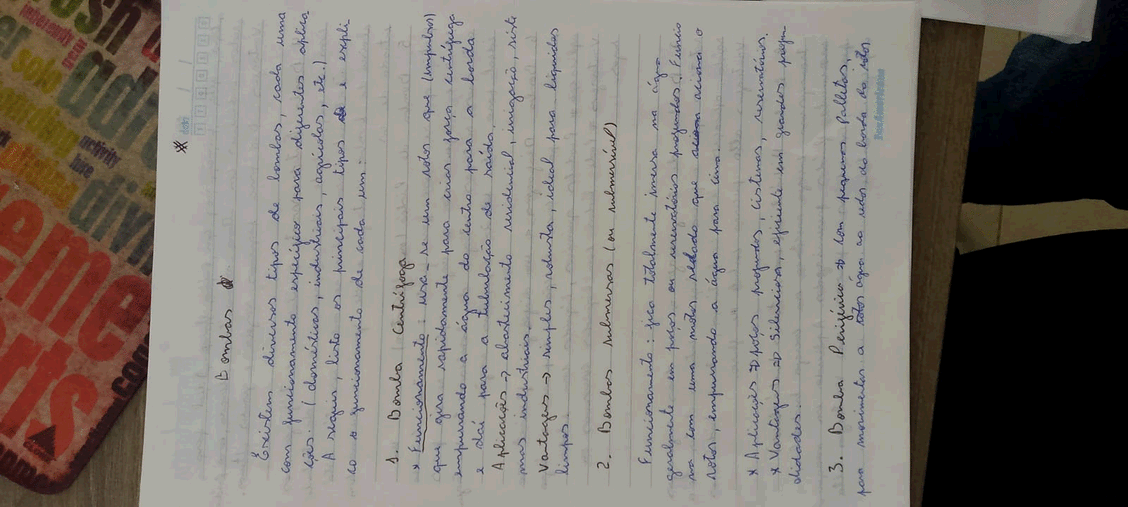 Bombas
Existem diversos tipos de bombas, cada uma
com funcionamento específico para diferentes aplica
ções. (domésticas, industriais, agrícolas, etc)
A seguir, listo os principais tipos de e expli
co o funcionamento de cada um:
1. Bomba Centrífuga
* Funcionamento: usa-se um rotor que (impulsor)
que gira rapidamente para criar força centrífuga
empurrando a água do centro para a borda
e daí para a tubulação de saída.
Aplicações → abastecimento residencial, irrigação, siste
mas industriais.
Vantagens → simples, robusta, ideal para líquidos
limpos.
2. Bombas submersas (ou submersível)
Funcionamento: fica totalmente imersa na água
geralmente em poços, ou reservatórios profundos. Funcio
na com uma motor selado que aciona o
rotor, empurrando a água para cima.
* Aplicações ⇒ poços profundos, cisternas, reservatórios.
* Vantagens ⇒ silenciosa, eficiente em grandes profun
didades.
3. Bomba Periférica → com pequenas palhetas,
para movimentar a água ao redor da borda do rotor